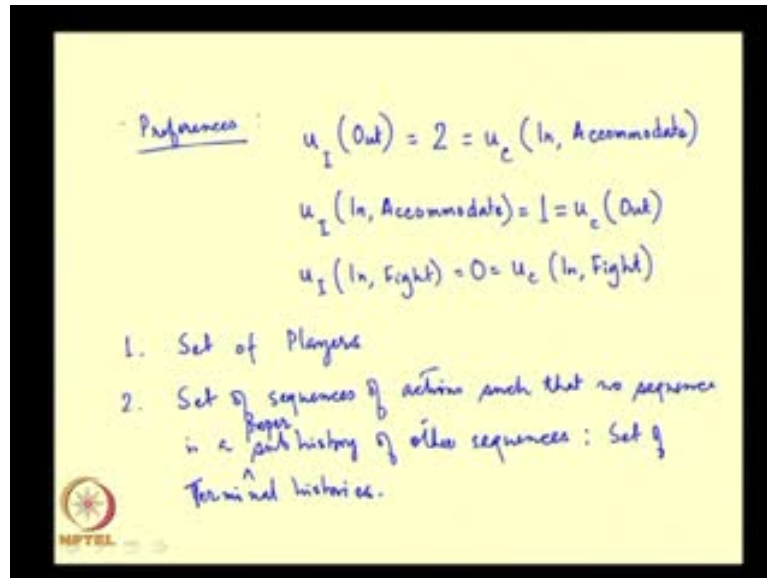 Preferences : u_I (Out) = 2 = u_c (In, Accommodate)
u_I (In, Accommodate) = 1 = u_c (Out)
u_I (In, Fight) = 0 = u_c (In, Fight)
1. Set of Players
2. Set of sequences of actions such that no sequence
is a proper subhistory of other sequences : Set of
Terminal histories.
NPTEL